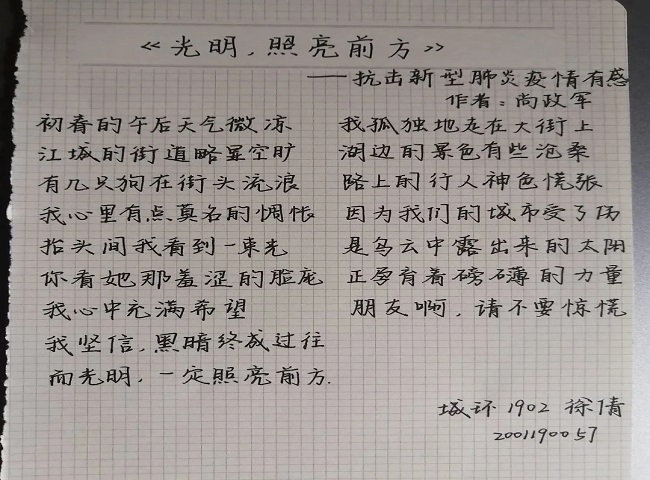 《光明，照亮前方》
——抗击新型肺炎疫情有感
作者：尚政军
初春的午后天气微凉 我孤独地走在大街上
江城的街道略显空旷 湖边的景色有些沧桑
有几只狗在街头流浪 路上的行人神色慌张
我心里有点莫名的惆怅 因为我们的城市受了伤
抬头间我看到一束光 是乌云中露出来的太阳
你看她那羞涩的脸庞 正孕育着磅礴的力量
我心中充满希望 朋友啊，请不要惊慌
我坚信，黑暗终成过往
而光明，一定照亮前方.
城环1902 徐倩
2001190057